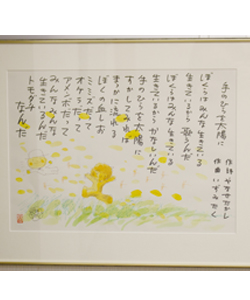 手のひらを太陽に
作詩 やなせたかし
作曲 いずみたく
ぼくらはみんな生きている
生きているから歌うんだ
ぼくらはみんな生きている
生きているからかなしいんだ
手のひらを太陽に
すかしてみれば
まっかに流れる
ぼくの血しお
ミミズだって
オケラだって
アメンボだって
みんなみんな
生きているんだ
トモダチ
なんだ